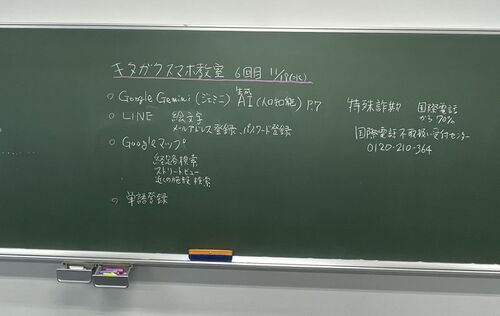 キタガクスマホ教室 6回目 11/19(水)
○ Google Gemini (ジェミニ) 生成AI (人工知能) P.7
○ LINE 絵文字
メールアドレス登録、パスワード登録
○ Googleマップ
経路検索
ストリートビュー
近くの施設検索
○ 単語登録
特殊詐欺 国際電話
から70%
国際電話不取扱い受付センター
0120-210-364